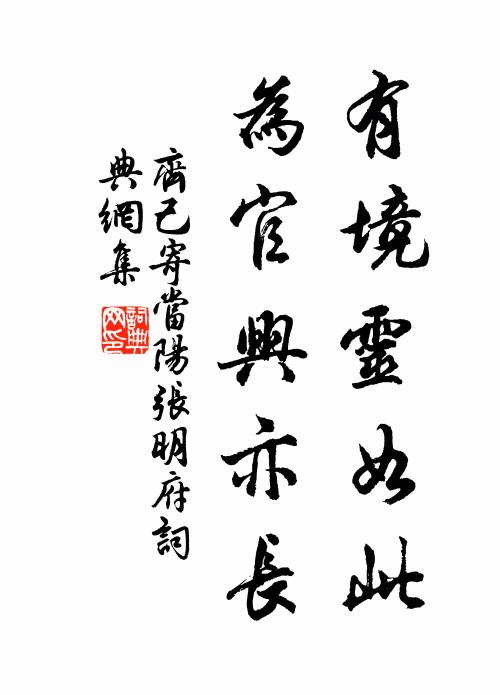 有境靈如此
為官興亦長
齊己寄當陽張明府詞
典網集
詞典
网印